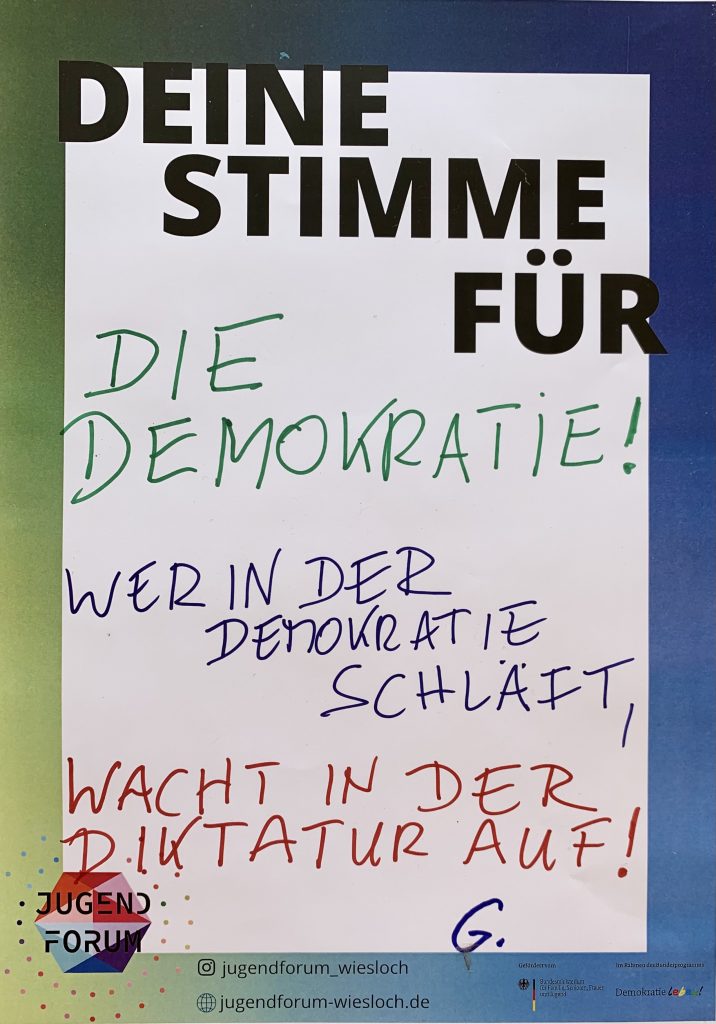 DEINE
STIMME
FÜR
DIE
DEMOKRATIE!
WER IN DER
DEMOKRATIE
SCHLÄFT,
WACHT IN DER
DIKTATUR AUF!
G.
JUGEND
FORUM
jugendforum_wiesloch
jugendforum-wiesloch.de
Gefördert vom
Bundesministerium
für Familie, Senioren, Frauen
und Jugend
Im Rahmen des Bundesprogramms
Demokratie leben!